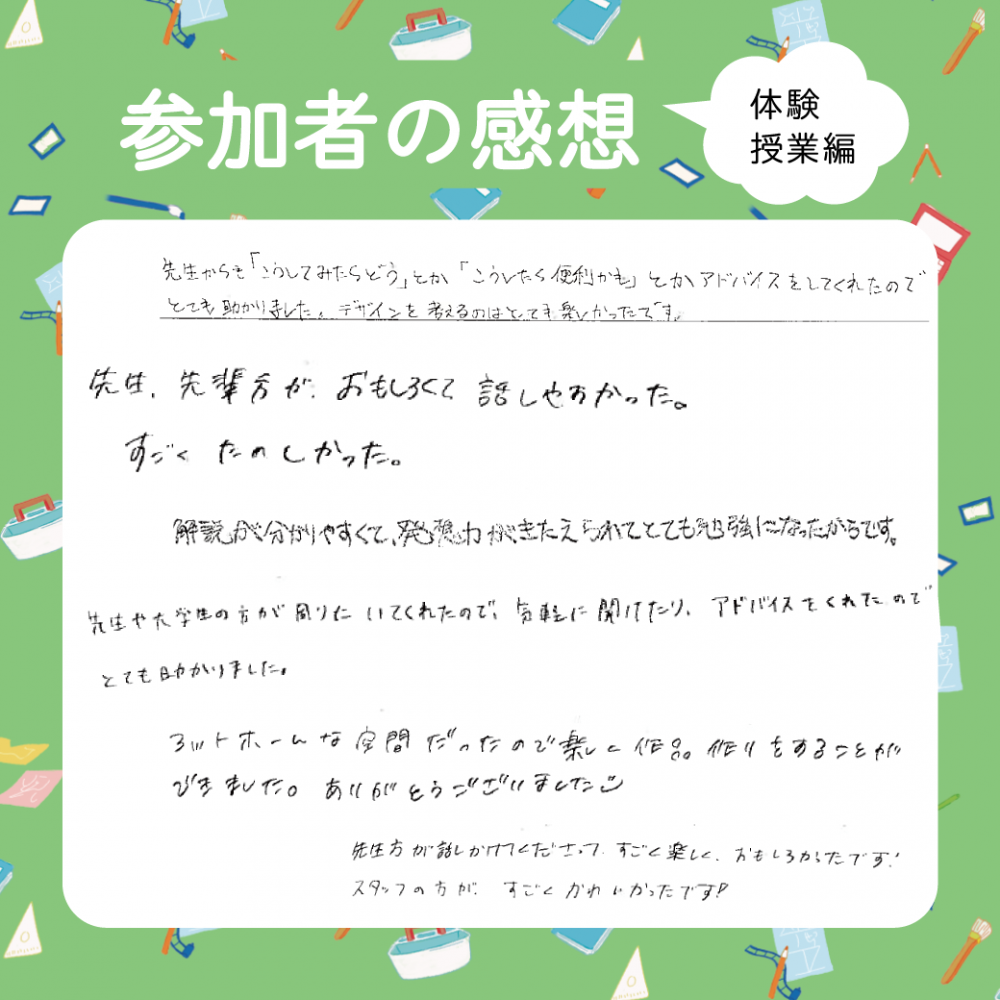 参加者の感想
体験
授業編
先生からも「こうしてみたらどう」とか「こうしたら便利かも」とかアドバイスをしてくれたので
とても助かりました。デザインを考えるのはとても楽しかったです。
先生、先輩方が、おもしろくて話しやすかった。
すごくたのしかった。
解説が分かりやすくて、発想力がきたえられてとても勉強になったからです。
先生や大学生の方が周りにいてくれたので、気軽に聞けたり、アドバイスをくれたので
とても助かりました。
アットホームな空間だったので楽しく作品作りをすることが
できました。ありがとうございました
先生方が話しかけてくださって、すごく楽しく、おもしろかったです!
スタッフの方が、すごくかわいかったです!